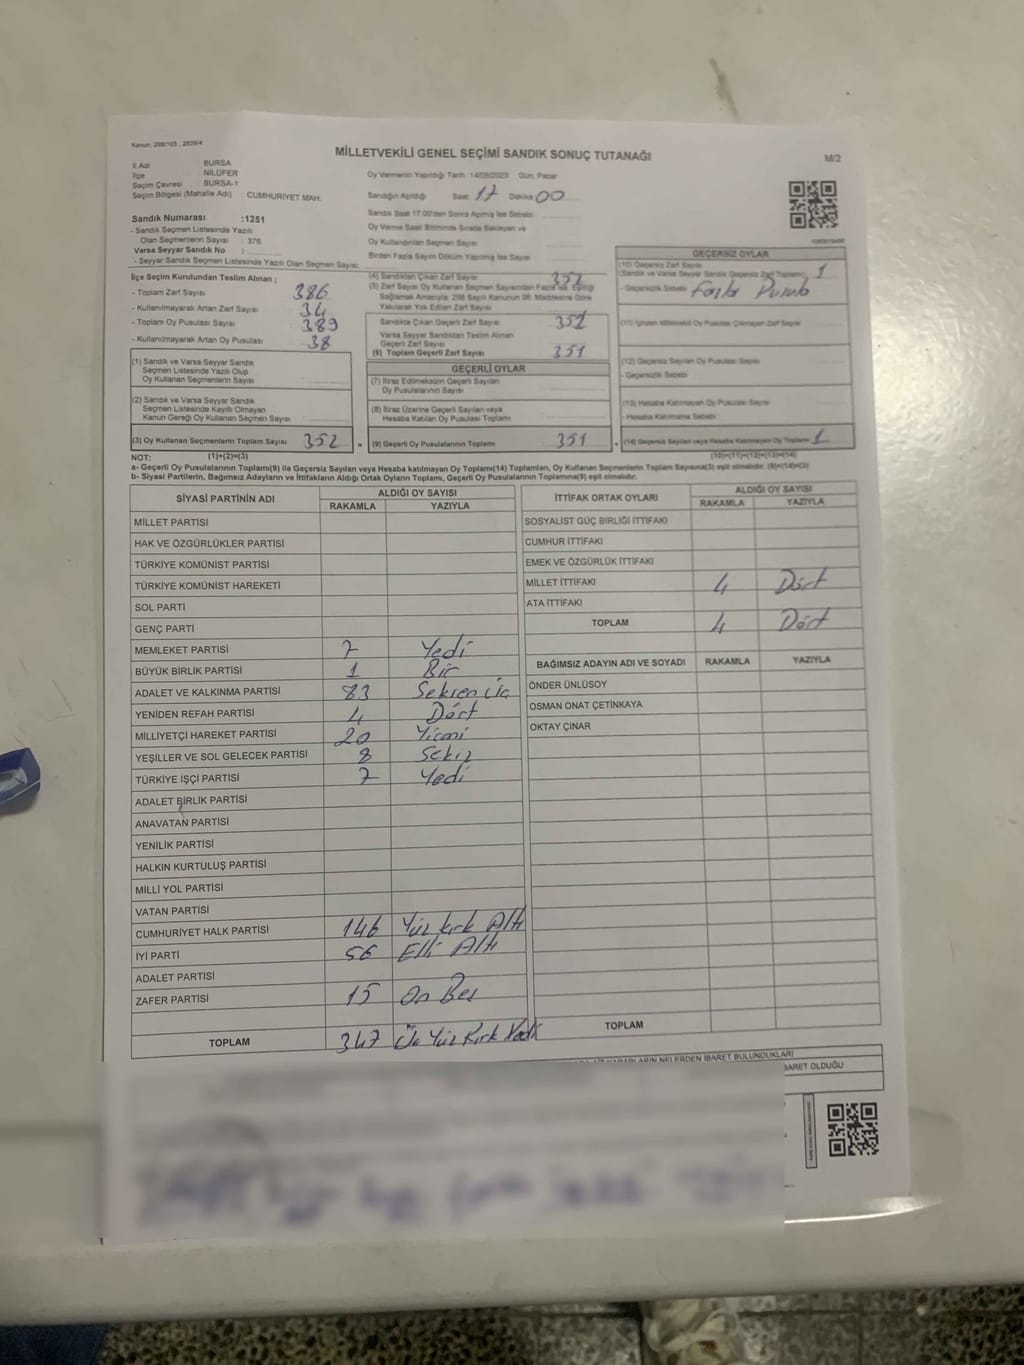 Kanun: 298/105 , 2839/4
MİLLETVEKİLİ GENEL SEÇİMİ SANDIK SONUÇ TUTANAĞI
M/2
İl Adı BURSA
İlçe NİLÜFER
Seçim Çevresi BURSA-1
Seçim Bölgesi (Mahalle Adı) : CUMHURİYET MAH.
Sandık Numarası :1251
- Sandık Seçmen Listesinde Yazılı
Olan Seçmenlerin Sayısı : 376
Varsa Seyyar Sandık No :
- Seyyar Sandık Seçmen Listesinde Yazılı Olan Seçmen Sayısı:
Oy Vermenin Yapıldığı Tarih: 14/05/2023 Gün: Pazar
Sandığın Açıldığı Saat 17 Dakika 00
Sandık Saat 17.00'den Sonra Açılmış İse Sebebi
Oy Verme Saati Bitiminde Sırada Bekleyen ve
Oy Kullandırılan Seçmen Sayısı
Birden Fazla Sayım Döküm Yapılmış İse Sayısı
İlçe Seçim Kurulundan Teslim Alınan ;
- Toplam Zarf Sayısı 386
- Kullanılmayarak Artan Zarf Sayısı 34
- Toplam Oy Pusulası Sayısı 389
- Kullanılmayarak Artan Oy Pusulası 38
(1) Sandık ve Varsa Seyyar Sandık
Seçmen Listesinde Yazılı Olup
Oy Kullanan Seçmenlerin Sayısı
(2) Sandık ve Varsa Seyyar Sandık
Seçmen Listesinde Kayıtlı Olmayan
Kanun Gereği Oy Kullanan Seçmen Sayısı
(3) Oy Kullanan Seçmenlerin Toplam Sayısı 352
(4) Sandıktan Çıkan Zarf Sayısı 352
(5) Zarf Sayısı Oy Kullanan Seçmen Sayısından Fazla ise, Eşitliği
Sağlamak Amacıyla; 298 Sayılı Kanunun 98. Maddesine Göre
Yakılarak Yok Edilen Zarf Sayısı
Sandıkta Çıkan Geçerli Zarf Sayısı 352
Varsa Seyyar Sandıktan Teslim Alınan
Geçerli Zarf Sayısı
(6) Toplam Geçerli Zarf Sayısı 351
GEÇERLİ OYLAR
(7) İtiraz Edilmeksizin Geçerli Sayılan
Oy Pusulalarının Sayısı
(8) İtiraz Üzerine Geçerli Sayılan veya
Hesaba Katılan Oy Pusulası Toplamı
(9) Geçerli Oy Pusulalarının Toplamı 351
GEÇERSİZ OYLAR
(10) Geçersiz Zarf Sayısı
(Sandık ve Varsa Seyyar Sandık Geçersiz Zarf Toplamı) 1
- Geçersizlik Sebebi Fazla Pusula
(11) İçinden Milletvekili Oy Pusulası Çıkmayan Zarf Sayısı
(12) Geçersiz Sayılan Oy Pusulası Sayısı
- Geçersizlik Sebebi
(13) Hesaba Katılmayan Oy Pusulası Sayısı
- Hesaba Katılmama Sebebi
(14) Geçersiz Sayılan veya Hesaba Katılmayan Oy Toplamı 1
NOT: (1)+(2)=(3) (10)+(11)+(12)+(13)=(14)
a- Geçerli Oy Pusulalarının Toplamı(9) ile Geçersiz Sayılan veya Hesaba katılmayan Oy Toplamı(14) Toplamları, Oy Kullanan Seçmenlerin Toplam Sayısına(3) eşit olmalıdır. (9)+(14)=(3)
b- Siyasi Partilerin, Bağımsız Adayların ve İttifakların Aldığı Ortak Oyların Toplamı, Geçerli Oy Pusulalarının Toplamına(9) eşit olmalıdır.
SİYASİ PARTİNİN ADI ALDIĞI OY SAYISI
RAKAMLA YAZIYLA
MİLLET PARTİSİ
HAK VE ÖZGÜRLÜKLER PARTİSİ
TÜRKİYE KOMÜNİST PARTİSİ
TÜRKİYE KOMÜNİST HAREKETİ
SOL PARTİ
GENÇ PARTİ
MEMLEKET PARTİSİ 7 Yedi
BÜYÜK BİRLİK PARTİSİ 1 Bir
ADALET VE KALKINMA PARTİSİ 83 Seksen Üç
YENİDEN REFAH PARTİSİ 4 Dört
MİLLİYETÇİ HAREKET PARTİSİ 20 Yirmi
YEŞİLLER VE SOL GELECEK PARTİSİ 8 Sekiz
TÜRKİYE İŞÇİ PARTİSİ 7 Yedi
ADALET BİRLİK PARTİSİ
ANAVATAN PARTİSİ
YENİLİK PARTİSİ
HALKIN KURTULUŞ PARTİSİ
MİLLİ YOL PARTİSİ
VATAN PARTİSİ
CUMHURİYET HALK PARTİSİ 146 Yüz Kırk Altı
İYİ PARTİ 56 Elli Altı
ADALET PARTİSİ
ZAFER PARTİSİ 15 On Beş
TOPLAM 347 Üç Yüz Kırk Yedi
İTTİFAK ORTAK OYLARI ALDIĞI OY SAYISI
RAKAMLA YAZIYLA
SOSYALİST GÜÇ BİRLİĞİ İTTİFAKI
CUMHUR İTTİFAKI
EMEK VE ÖZGÜRLÜK İTTİFAKI
MİLLET İTTİFAKI 4 Dört
ATA İTTİFAKI
TOPLAM 4 Dört
BAĞIMSIZ ADAYIN ADI VE SOYADI RAKAMLA YAZIYLA
ÖNDER ÜNLÜSOY
OSMAN ONAT ÇETİNKAYA
OKTAY ÇINAR
TOPLAM
NELERDEN İBARET BULUNDUKLARI
BARET OLDUĞU